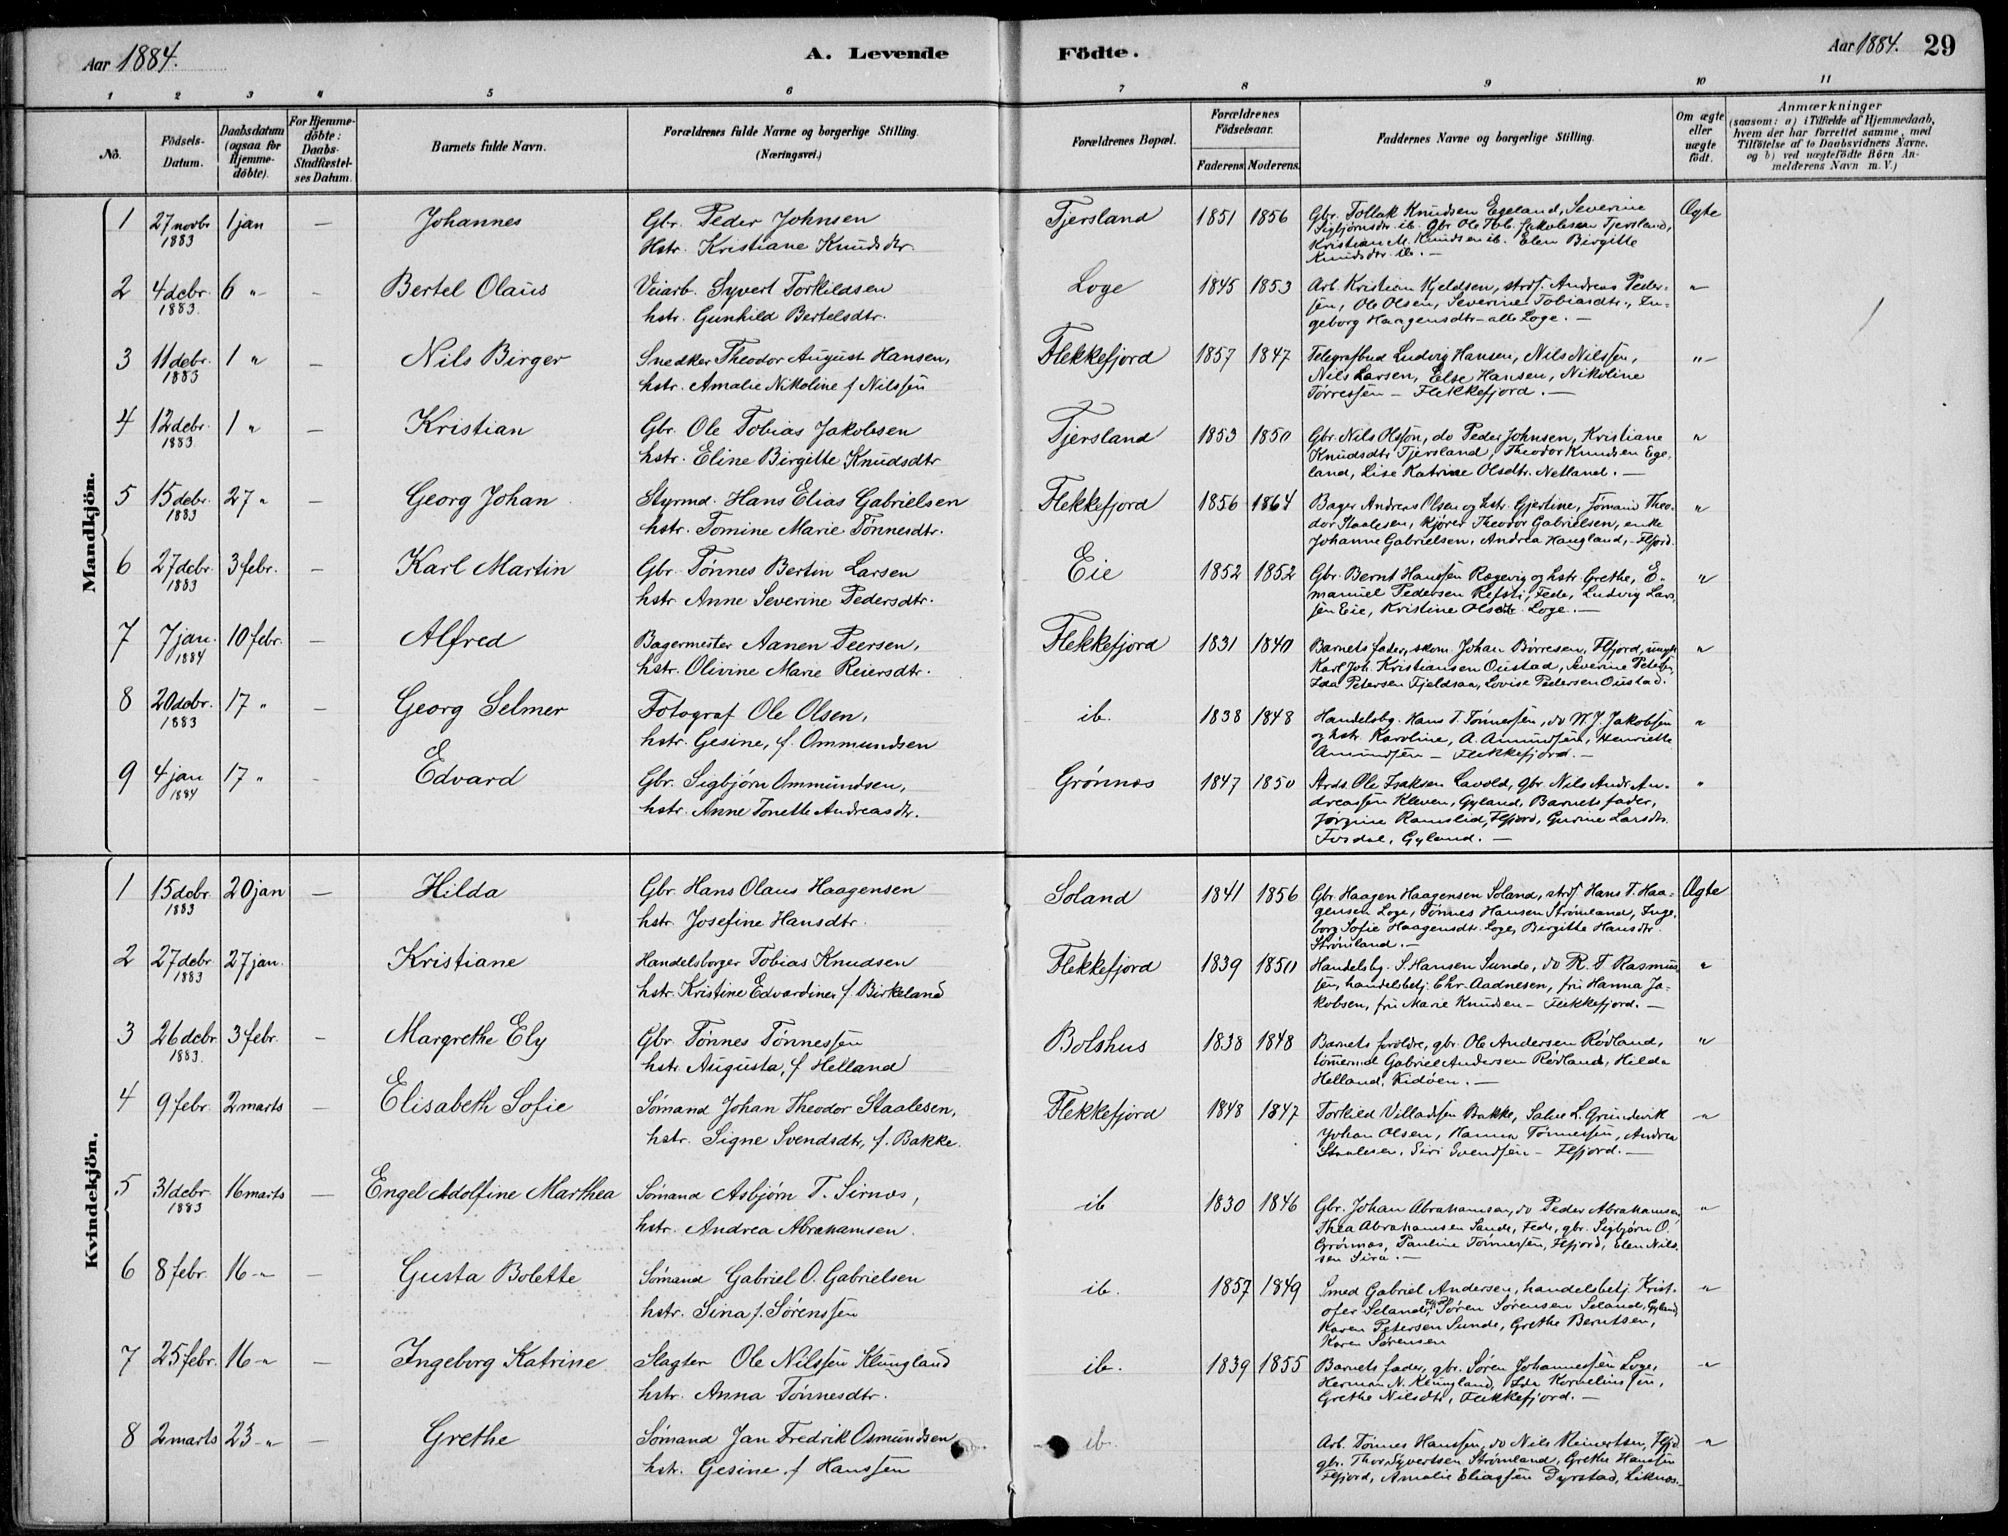 Aar 1884. A. Levende Födte. Aar 1884. 29
1 2 3 4 5 6 7 8 9 10 11
Nô. Födsels-Datum. Daabsdatum (ogsaa for Hjemme-döbte). For Hjemme-döbte: Daabs-Stadfæstel-ses Datum. Barnets fulde Navn. Forældrenes fulde Navne og borgerlige Stilling. (Næringsvei.) Forældrenes Bopæl. Forældrenes Födselsaar. Faderens. Moderens. Faddernes Navne og borgerlige Stilling. Om ægte eller uægte födt. Anmærkninger (saasom: a) i Tilfælde af Hjemmedaab, hvem der har forrettet samme, med Tilföielse af to Daabsvidners Navne. og b) ved uægtefödte Börn An-melderens Navn m. V.)
Mandkjön.
1 27 novbr 1883 1 jan — Johannes Gbr. Peder Johnsen Tjersland 1851 1856 Gbr. Tollak Knudsen Egeland, Severine Ægte
Hstr. Kristiane Knudsdtr. Sigbjørnsdtr. ib. Gbr. Ole Tob. Jakobsen Tjersland,
Kristian M. Knudsen ib. Elen Birgitte
Knudsdtr. ib. —
2 4 debr. 1883. 6 " – Bertel Olaus Veiarb. Syvert Torkildsen Loge 1845 1853 Arb. Kristian Kjeldsen, strdf. Andreas Peder- "
hstr. Gunhild Bertelsdtr. sen, Ole Olsen, Severine Tobiasdtr., In-
geborg Haagensdtr – alle Loge. —
3 11 debr. 1883 1 " – Nils Birger Snedker Theodor August Hansen, Flekkefjord 1857 1847 Telegrafbud Ludvig Hansen, Nils Nilssen, "
hstr. Amalie Nikoline f Nilssen Nils Larsen, Else Hansen, Nikoline
Tørressen – Flekkefjord. —
4 12 debr. 1883 1 " – Kristian Gbr. Ole Tobias Jakobsen Tjersland 1853 1850 Gbr. Nils Olsson, do Peder Johnsen, Kristiane "
hstr. Eline Birgitte Knudsdtr Knudsdtr Tjersland, Theodor Knudsen Ege-
land, Lise Katrine Olsdtr. Netland. —
5 15 debr. 1883 27 " – Georg Johan Styrmd. Hans Elias Gabrielsen Flekkefjord 1856 1864 Bager Andreas Olsen og hstr. Gjertine, sømand Theo- "
hstr. Tomine Marie Tønnesdtr. dor Staalesen, kjører Theodor Gabrielsen, enke
Johanne Gabrielsen, Andrea Haugland, – Flfjord.
6 27 debr. 1883 3 febr. – Karl Martin Gbr. Tønnes Bertin Larsen Eie 1852 1852 Gbr. Bernt Hanssen Rægevig og hstr. Grethe, E- "
hstr. Anne Severine Pedersdtr. manuel Pedersen Refsti, Fede, Ludvig Lars-
sen Eie, Kristine Olsdtr Loge. —
7 7 jan. 1884 10 febr. – Alfred Bagermester Aanen Peersen, Flekkefjord 1831 1840 Barnets fader, skom. Johan Børresen, Flfjord, ungk. "
hstr. Olivine Marie Reiersdtr. Karl Joh. Kristiansen Oustad, Severine Petersen,
Ida Petersen Fjeldsaa, Lovise Pedersen Oustad.
8 20 debr. 1883 17 " – Georg Selmer Fotograf Ole Olsen, ib. 1838 1848 Handelsbg. Hans T. Tønnessen, do N. J. Jakobsen "
hstr. Gesine, f. Ommundsen og hstr. Karoline, A. Amundsen, Henriette
Amundsen – Flekkefjord. —
9 4 jan 1884 17 " – Edvard Gbr. Sigbjørn Ommundsen, Grønnæs 1847 1850 Strds. Ole Isaksen Lavold, gbr. Nils Andr. An- "
hstr. Anne Tonette Andreasdtr. dreassen Kleven, Gyland, Barnets fader,
Jørgine Ramslid, Flfjord, Gurine Larsdtr.
Fosdal, Gyland. —
Kvindekjön.
1 15 debr. 1883 20 jan — Hilda Gbr. Hans Olaus Haagensen Soland 1841 1856 Gbr Haagen Haagensen Soland, strdf. Hans T. Haa- Ægte
hstr. Josefine Hansdtr. gensen Loge, Tønnes Hansen Strømland, Inge-
borg Sofie Haagensdtr. Loge, Birgitte Hansdtr.
Strømland. —
2 27 debr 1883 27 jan. – Kristiane Handelsborger Tobias Knudsen Flekkefjord 1839 1850 Handelsbg. S. Hansen Sunde, do R. T. Rasmus- "
hstr. Kristine Edvardine f. Birkeland sen, handelsbetj. Chr. Aadnesen, frk Hanna Ja-
kobsen, frk Marie Knudsen – Flekkefjord. —
3 26 debr. 1883. 3 febr. – Margrethe Ely Gbr. Tønnes Tønnessen Bolshus 1838 1848 Barnets foreldre, gbr. Ole Andersen Rødland, "
hstr. Augusta, f Helland tømermd Gabriel Andersen Rødland, Hilda
Helland, Kidøen. —
4 9 febr. 2 marts – Elisabeth Sofie Sømand Johan Theodor Staalesen, Flekkefjord 1848 1847 Torkied Villadsen Bakke, Salve L. Grundevik "
hstr. Signe Svendsdtr, f. Bakke. Johan Olsen, Hanna Tønnessen, Andrea
Staalesen, Siri Svendsen – Flfjord. —
5 31 debr. 1883 16 marts — Engel Adolfine Marthea Sømand Asbjørn T. Sirnæs, ib 1830 1846 Gbr. Johan Abrahamsen, do Peder Abrahamsen, "
hstr. Andrea Abrahamsen. Thea Abrahamsen Sande, Fede, gbr. Sigbjørn O.
Grønnæs, Pauline Tønnessen, Flfjord, Elen Nils-
sen Sira. —
6 8 febr. 16 " — Gusta Bolette Sømand Gabriel O. Gabrielsen ib. 1857 1849 Smed Gabriel Andersen, handelsbetj. Krist- "
hstr. Sina f. Sørenssen ofer Seland, Søren Sørensen Seland, Gyland,
Karen Petersen Sunde, Grethe Berntsen,
Karen Sørensen
7 25 febr. 16 " — Ingeborg Katrine Slagter Ole Nilssen Klungland ib. 1839 1855 Barnets fader, gbr. Søren Johannessen Loge, "
hstr. Anna Tønnesdtr. Herman N. Klungland, Ida Korneliussen,
Grethe Nilsdtr, Flekkefjord. —
8 2 marts 23 " — Grethe Sømand Jan Fredrik Osmundsen ib. Arb. Tønnes Hanssen, do Nils Reinertsen, Flfjd "
hstr. Gesine f Hanssen gbr. Thor Syvertsen Strømland, Grethe Hanssen
Flfjord, Amalie Eliassen Dyrstad, Liknæs.